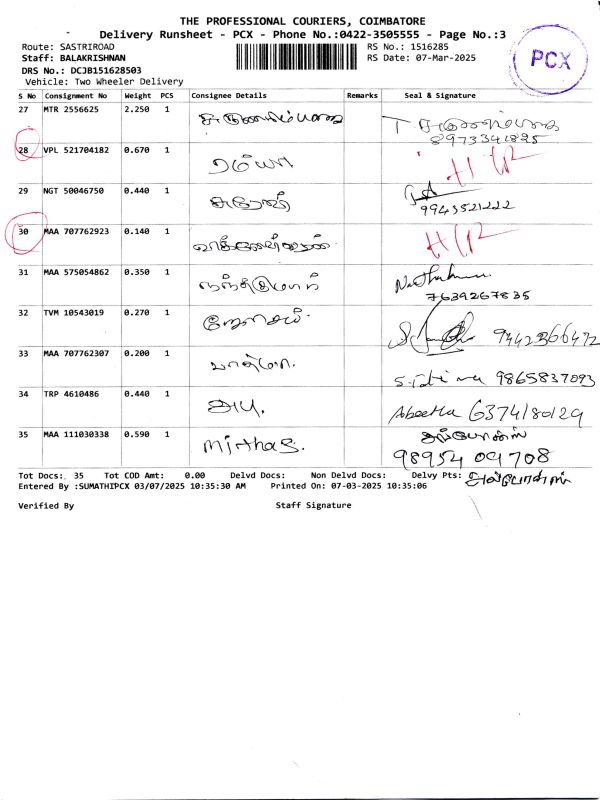 THE PROFESSIONAL COURIERS, COIMBATORE
Delivery Runsheet - PCX - Phone No.:0422-3505555 - Page No.:3
Route: SASTRIROAD
RS No.: 1516285
Staff: BALAKRISHNAN
RS Date: 07-Mar-2025
PCX
DRS No.: DCJB151628503
Vehicle: Two Wheeler Delivery
S No Consignment No Weight PCS Consignee Details Remarks Seal & Signature
27 MTR 2556625 2.250 1
8973341825
28 VPL 521704182 0.670 1 ரம்யா
29 NGT 50046750 0.440 1
9943521222
30 MAA 707762923 0.140 1
31 MAA 575054862 0.350 1
7639267835
32 TVM 10543019 0.270 1
9442366472
33 MAA 707762307 0.200 1
9865837093
34 TRP 4610486 0.440 1 அபி. Abeetha 6374180129
35 MAA 111030338 0.590 1 Mirthas.
9895409708
Tot Docs: 35 Tot COD Amt: 0.00 Delvd Docs: Non Delvd Docs: Delvy Pts:
Entered By :SUMATHIPCX 03/07/2025 10:35:30 AM Printed On: 07-03-2025 10:35:06
Verified By Staff Signature